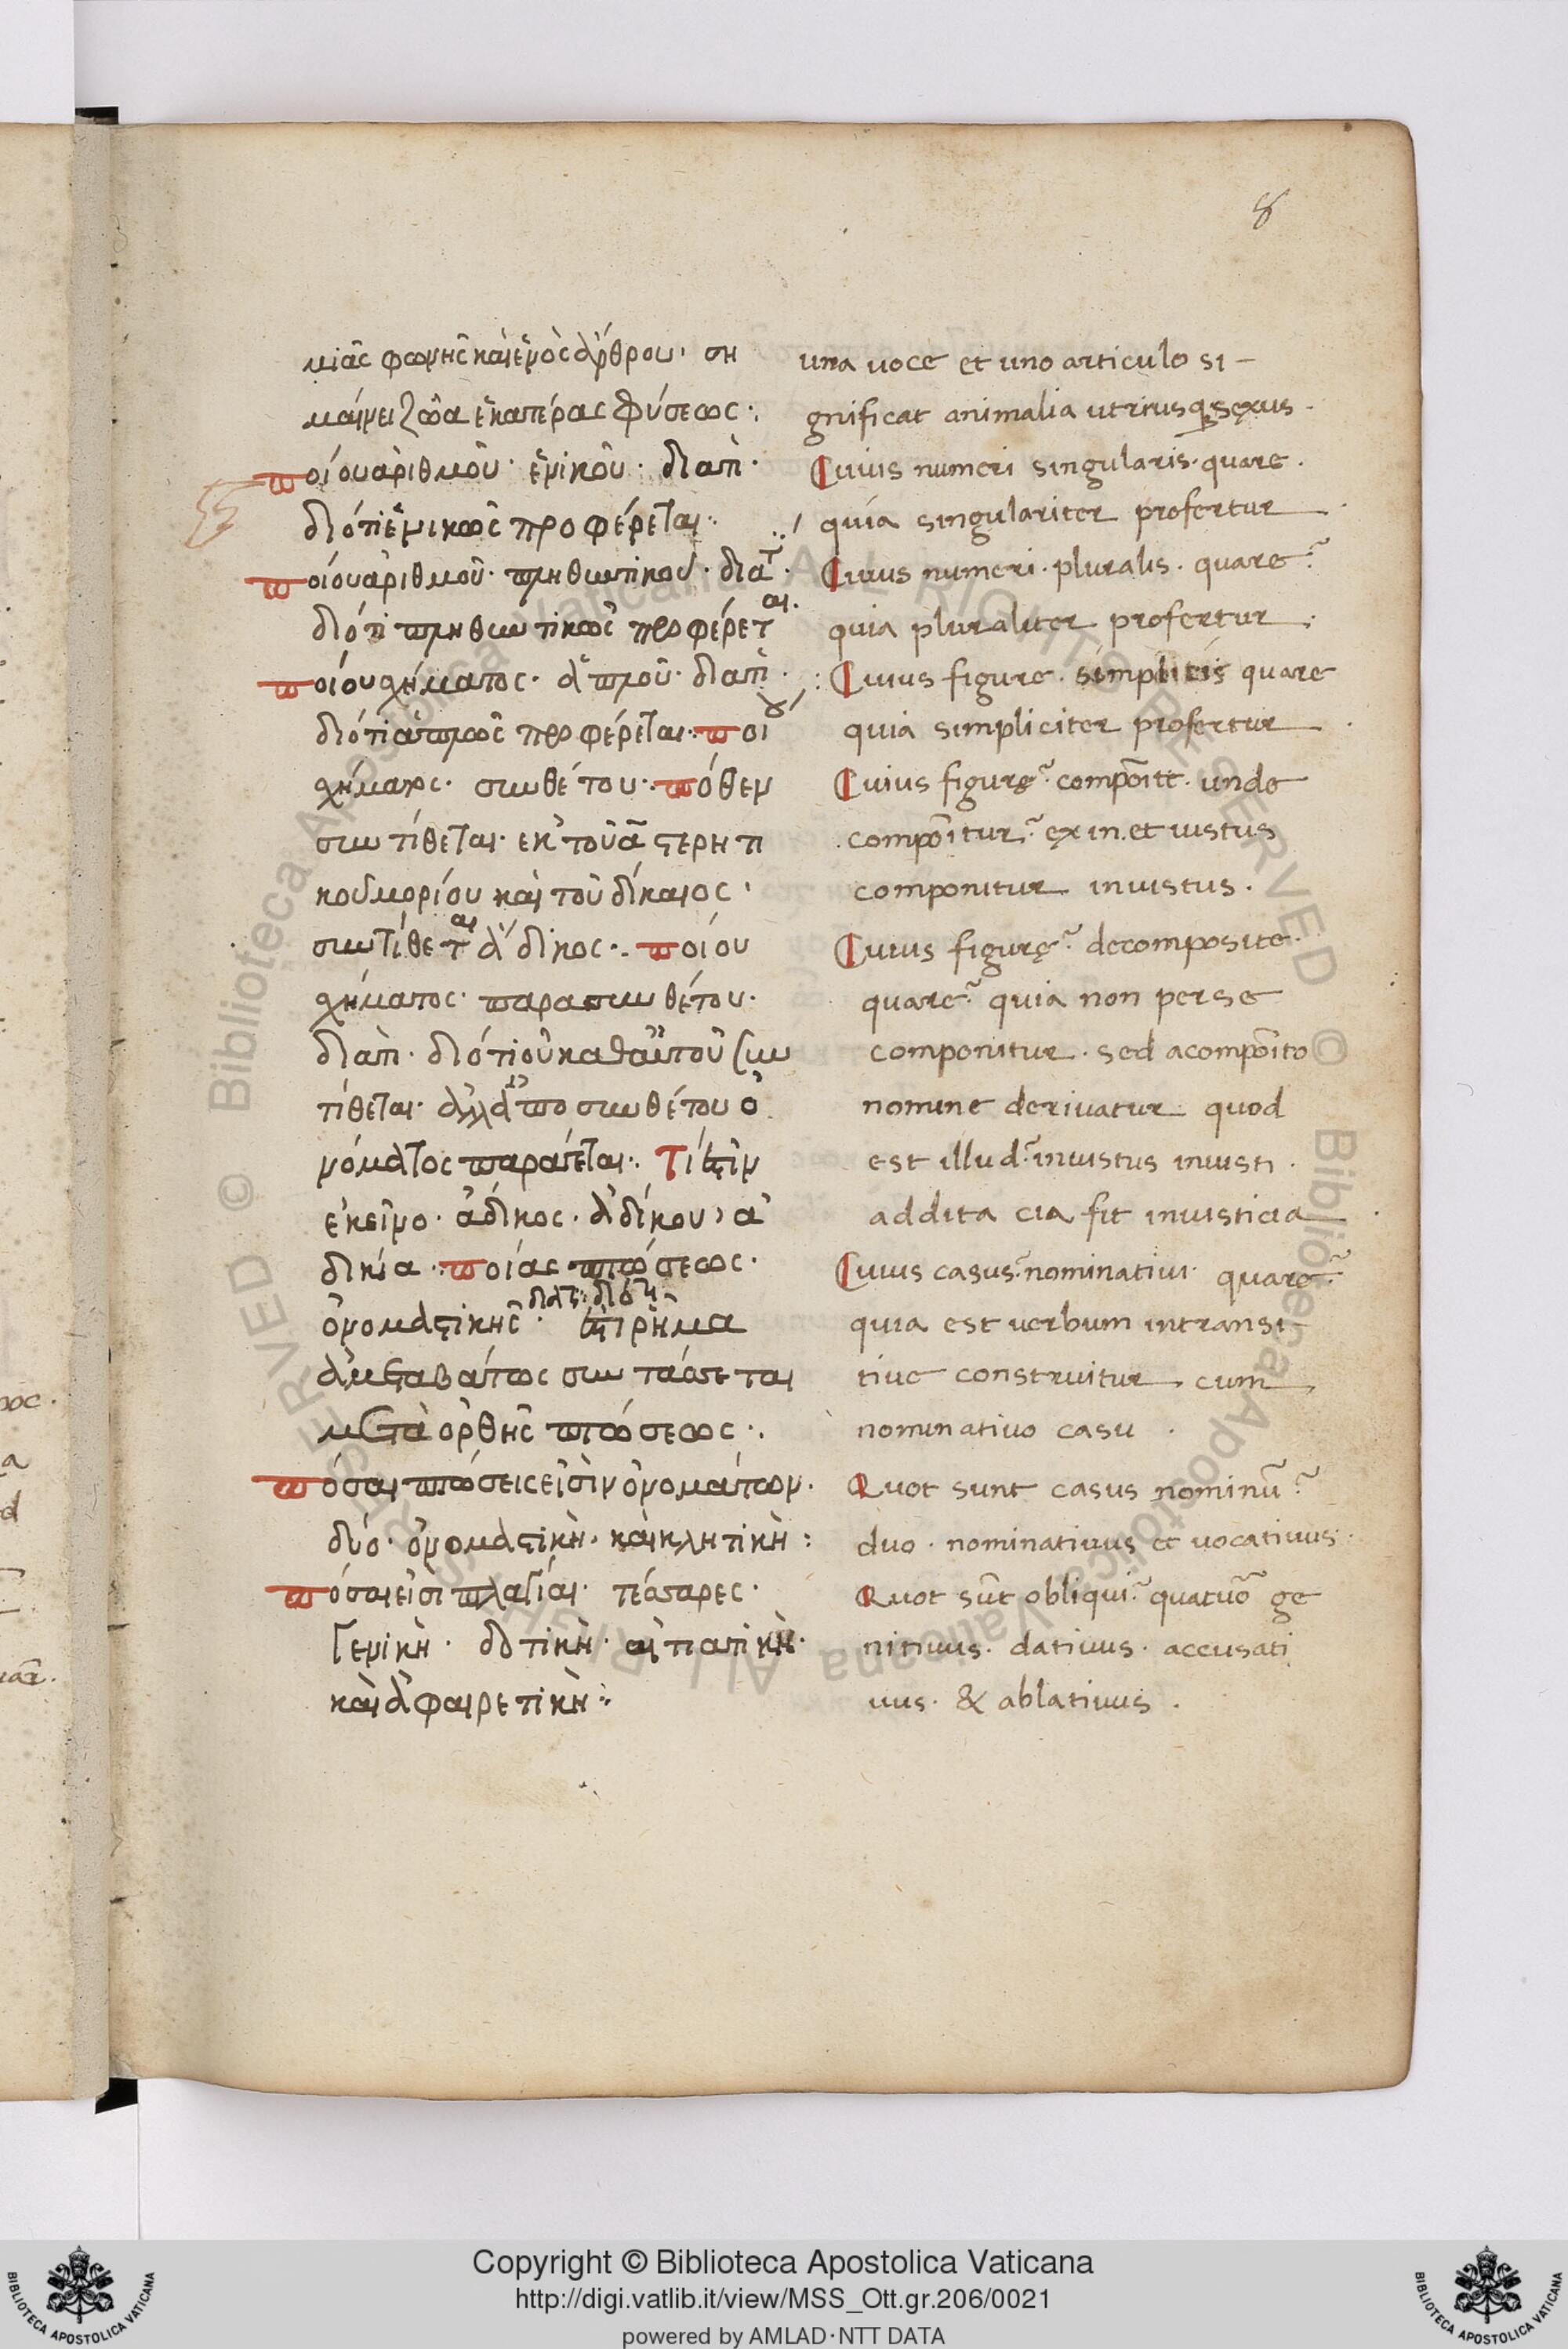 8
μιᾶς φωνῆς καὶ ἑνὸς ἄρθρου· ση
μαίνει ζῶα ἑκατέρας φύσεως·
ποίου ἀριθμοῦ· ἑνικοῦ· διατὶ·
διότι ἑνικῶς προφέρεται·
ποίου ἀριθμοῦ· πληθυντικοῦ· διατ·
διότι πληθυντικῶς προφέρεται·
ποίου σχήματος· ἁπλοῦ· διατὶ·
διότι ἁπλῶς προφέρεται· ποίου
σχήματος· συνθέτου· πόθεν
συντίθεται· ἐκ τοῦ ᾱ στερητι
κοῦ μορίου καὶ τοῦ δίκαιος·
συντίθεται ἄδικος· ποίου
σχήματος· παρασυνθέτου·
διατὶ· διότι οὐ καθ αὑτοῦ συν
τίθεται· ἀλλ ἀπὸ συνθέτου ὀ
νόματος παράγεται· Τί ἐστὶν
ἐκεῖνο· ἄδικος· ἀδίκου, ἀ
δικία· ποίας πτώσεως·
ὀνομαστικῆς· διατί· διότι ἐστὶ ῥῆμα
ἀμεταβάτως συντάσσεται
μετὰ ὀρθῆς πτώσεως·
πόσαι πτώσεις εἰσὶν ὀνομάτων·
δύο· ὀνομαστικὴ· καὶ κλητικὴ:
πόσαι εἰσι πλαγίαι· τέσσαρες·
Γενικὴ· δοτικὴ· αἰτιατικὴ·
καὶ ἀφαιρετικὴ:
una voce et uno articulo si-
gnificat animalia utriusq sexus·
Cuius numeri singularis· quare·
quia singulariter profertur
Cuius numeri· pluralis· quare?
quia pluraliter profertur·
Cuius figure· simplicis quare
quia simpliciter profertur
Cuius figurę? compoite· unde
compoitur? ex in· et iustus
componitur iniustus·
Cuius figurę? decomposite·
quare? quia non per se
componitur· sed a compoito
nomine derivatur quod
est illud? iniustus iniusti·
addita cia fit iniusticia
Cuius casus? nominativi· quare?
quia est verbum intransi-
tive construitur cum
nominativo casu·
Quot sunt casus nominū?
duo· nominativus et vocativus·
Quot sūt obliqui? quatuō ge
nitivus· dativus· accusati
vus· & ablativus·
Copyright © Biblioteca Apostolica Vaticana
http://digi.vatlib.it/view/MSS_Ott.gr.206/0021
powered by AMLAD·NTT DATA